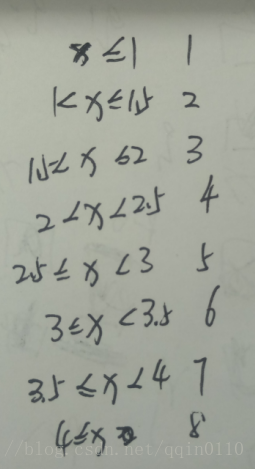 x ≤ 1 1
1 < x ≤ 1.5 2
1.5 < x ≤ 2 3
2 < x < 2.5 4
2.5 ≤ x < 3 5
3 ≤ x < 3.5 6
3.5 ≤ x < 4 7
4 ≤ x 8
http://blog.csdn.net/qqin0110